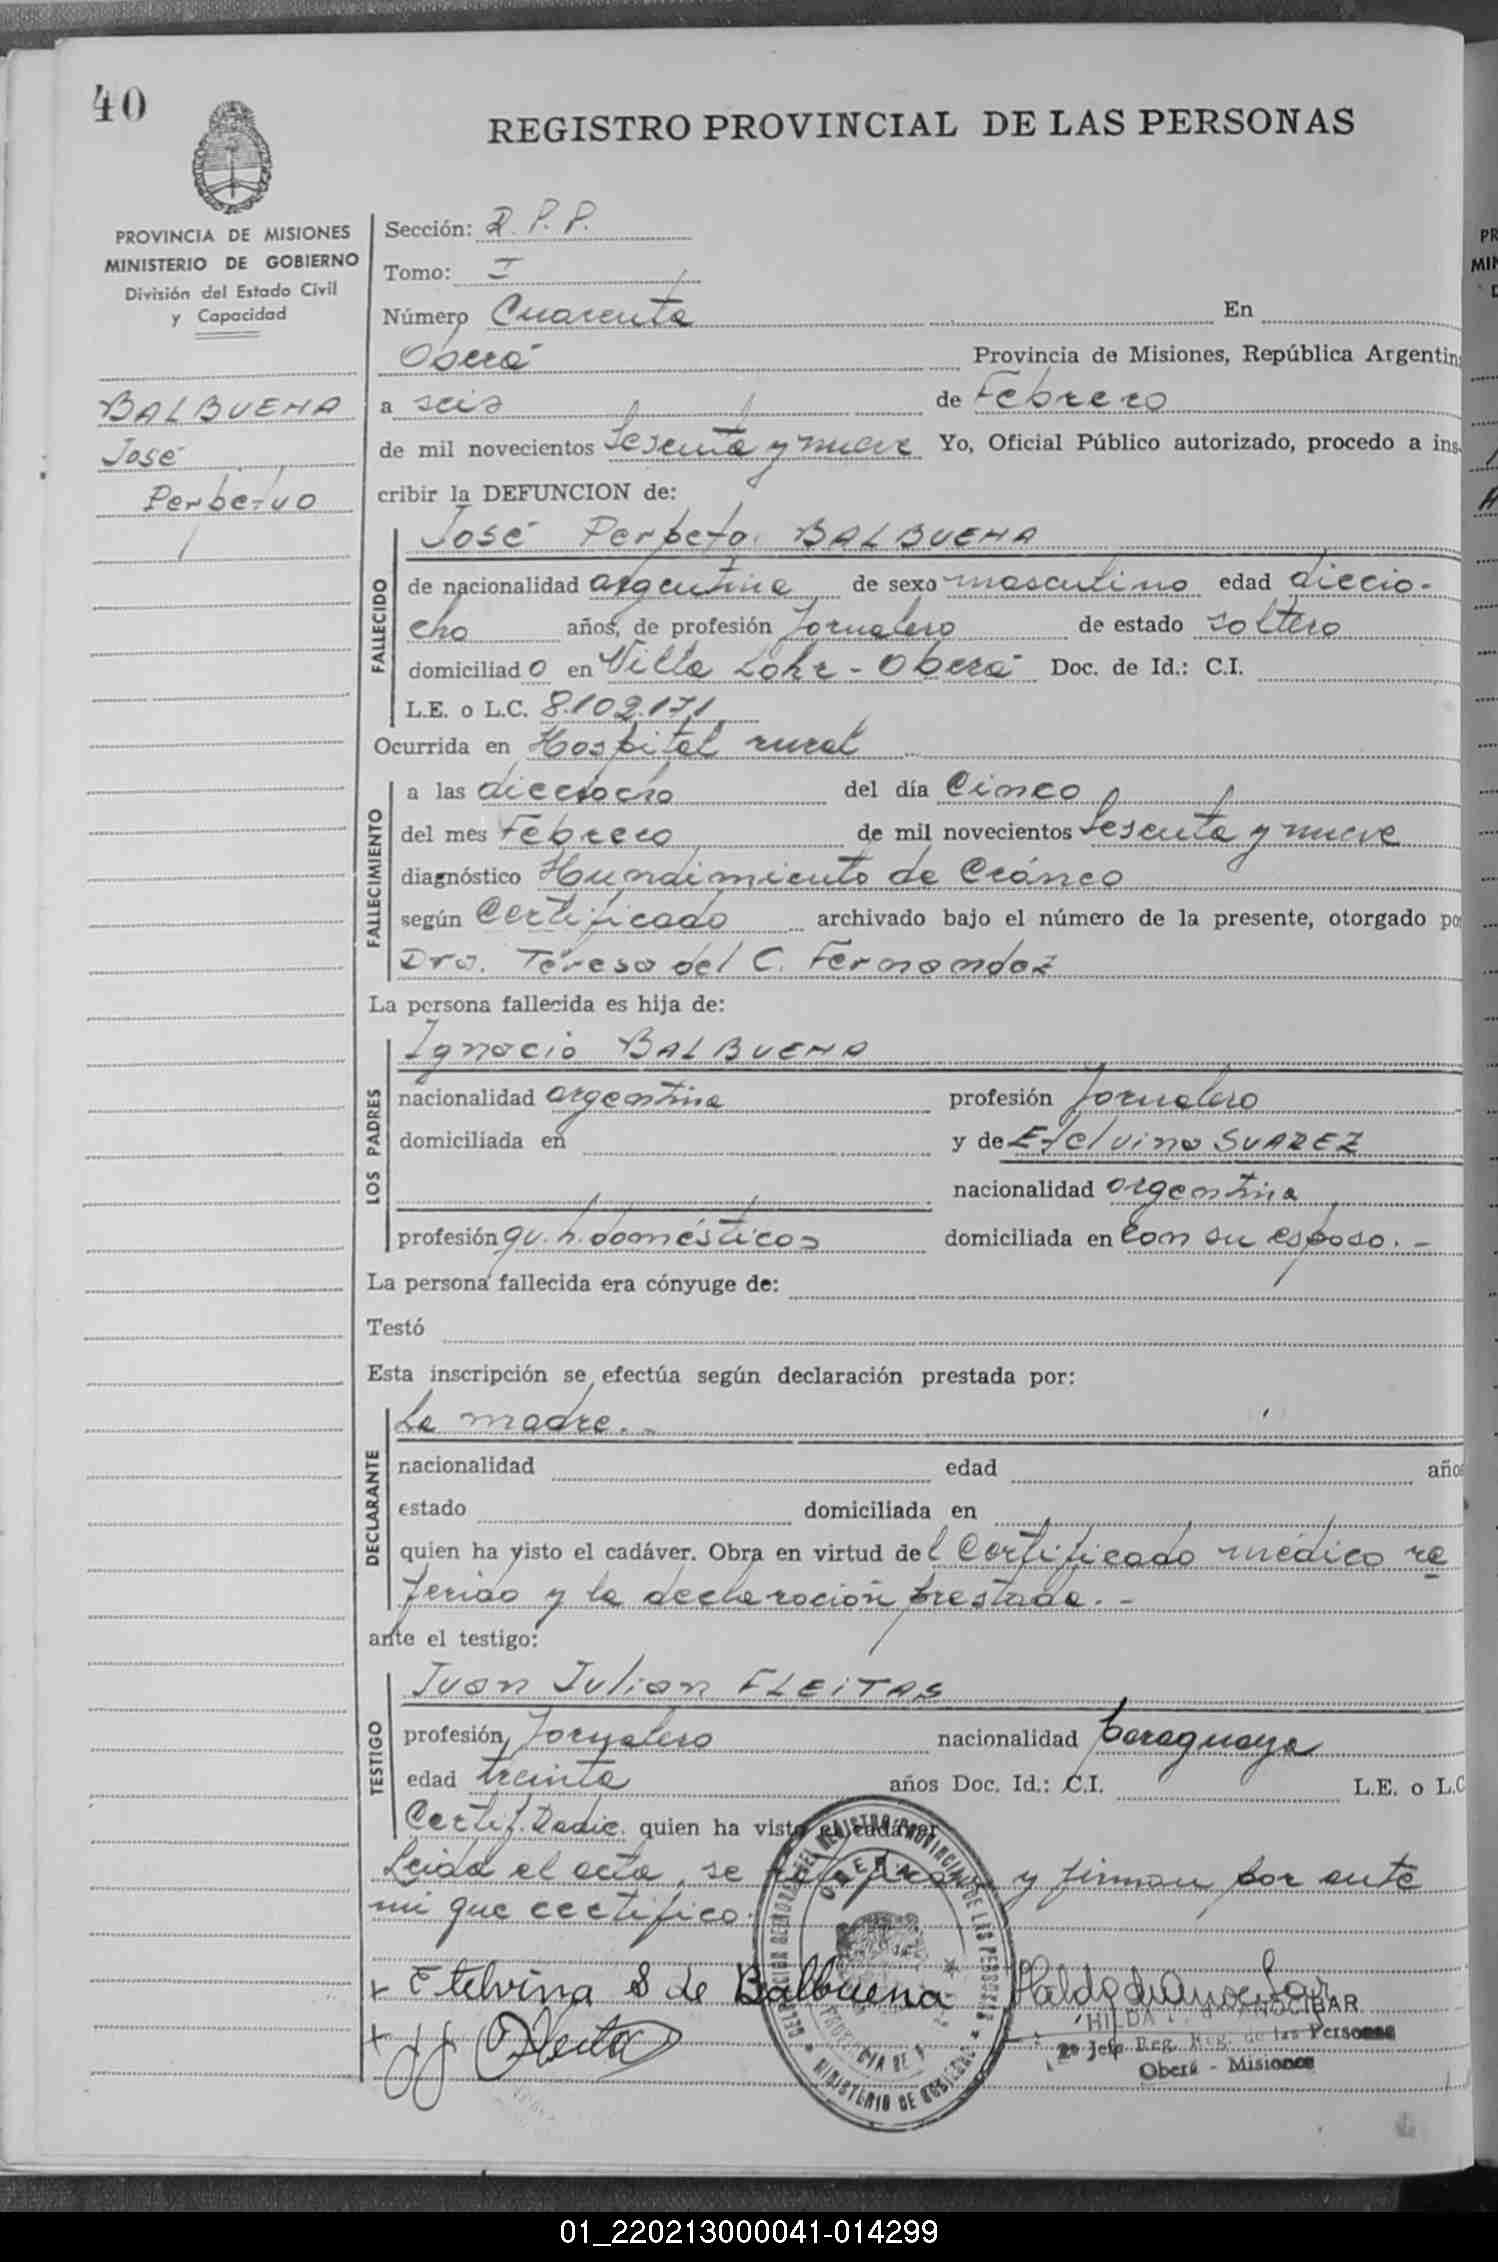 40
REGISTRO PROVINCIAL DE LAS PERSONAS
PROVINCIA DE MISIONES
MINISTERIO DE GOBIERNO
División del Estado Civil
y Capacidad
BALBUENA
José
Perpetuo
Sección: R.P.P.
Tomo: I
Número Cuarenta En
Oberá Provincia de Misiones, República Argentin
a seis de Febrero
de mil novecientos Sesenta y nueve Yo, Oficial Público autorizado, procedo a ins-
cribir la DEFUNCION de:
José Perpeto BALBUENA
FALLECIDO
de nacionalidad argentina de sexo masculino edad diecio-
cho años, de profesión Jornalero de estado soltero
domiciliado en Villa Lohr - Oberá Doc. de Id.: C.I.
L.E. o L.C. 8.102.171
Ocurrida en Hospital rural
FALLECIMIENTO
a las dieciocho del día Cinco
del mes Febrero de mil novecientos Sesenta y nueve
diagnóstico Hundimiento de Cráneo
según Certificado archivado bajo el número de la presente, otorgado po
Dra. Teresa del C. Fernandez
La persona fallecida es hija de:
LOS PADRES
Ignacio BALBUENA
nacionalidad argentina profesión Jornalero
domiciliada en y de Etelvina SUAREZ
nacionalidad argentina
profesión qu. h. domésticos domiciliada en Con su esposo.-
La persona fallecida era cónyuge de:
Testó
Esta inscripción se efectúa según declaración prestada por:
DECLARANTE
La madre.-
nacionalidad edad año
estado domiciliada en
quien ha visto el cadáver. Obra en virtud del Certificado médico re
ferido y la declaración prestada.-
ante el testigo:
TESTIGO
Juan Julian FLEITAS
profesión Jornalero nacionalidad paraguaya
edad treinta años Doc. Id.: C.I. L.E. o L.C
Certif. Radic. quien ha visto el cadáver
Leida el acta, se ratifican y firman por ante
mi que certifico.
Etelvina S de Balbuena
HILDA ANOCIBAR
2º Jefe Reg. de las Personas
Oberá - Misiones
REGISTRO PROVINCIAL DE LAS PERSONAS
OBERA
MINISTERIO DE GOBIERNO
PR
MIN
01_220213000041-014299